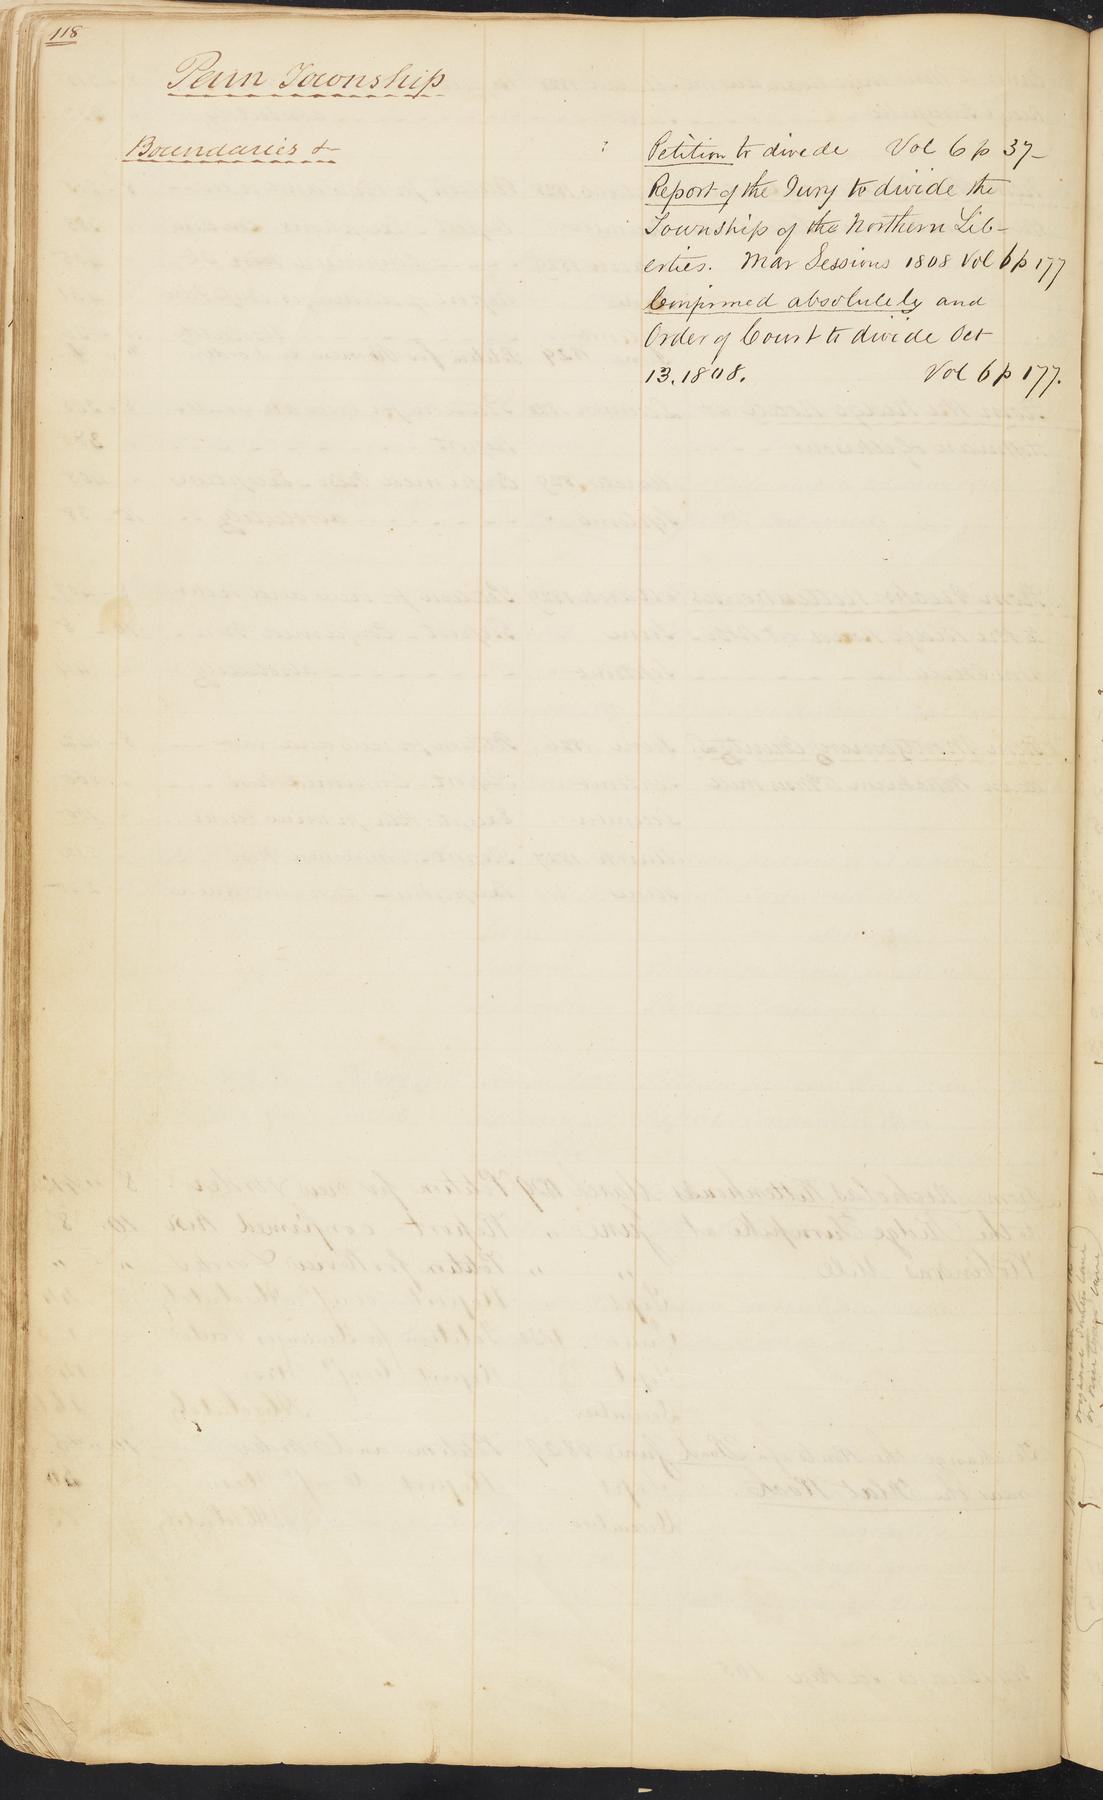 118
Penn Township
Boundaries &
Petition to divide Vol 6 p 37-
Report of the Jury to divide the
Township of the Northern Lib-
erties. Mar Sessions 1808 Vol 6 p 177
Confirmed absolutely and
Order of Court to divide Oct
13. 1808. Vol 6 p 177.